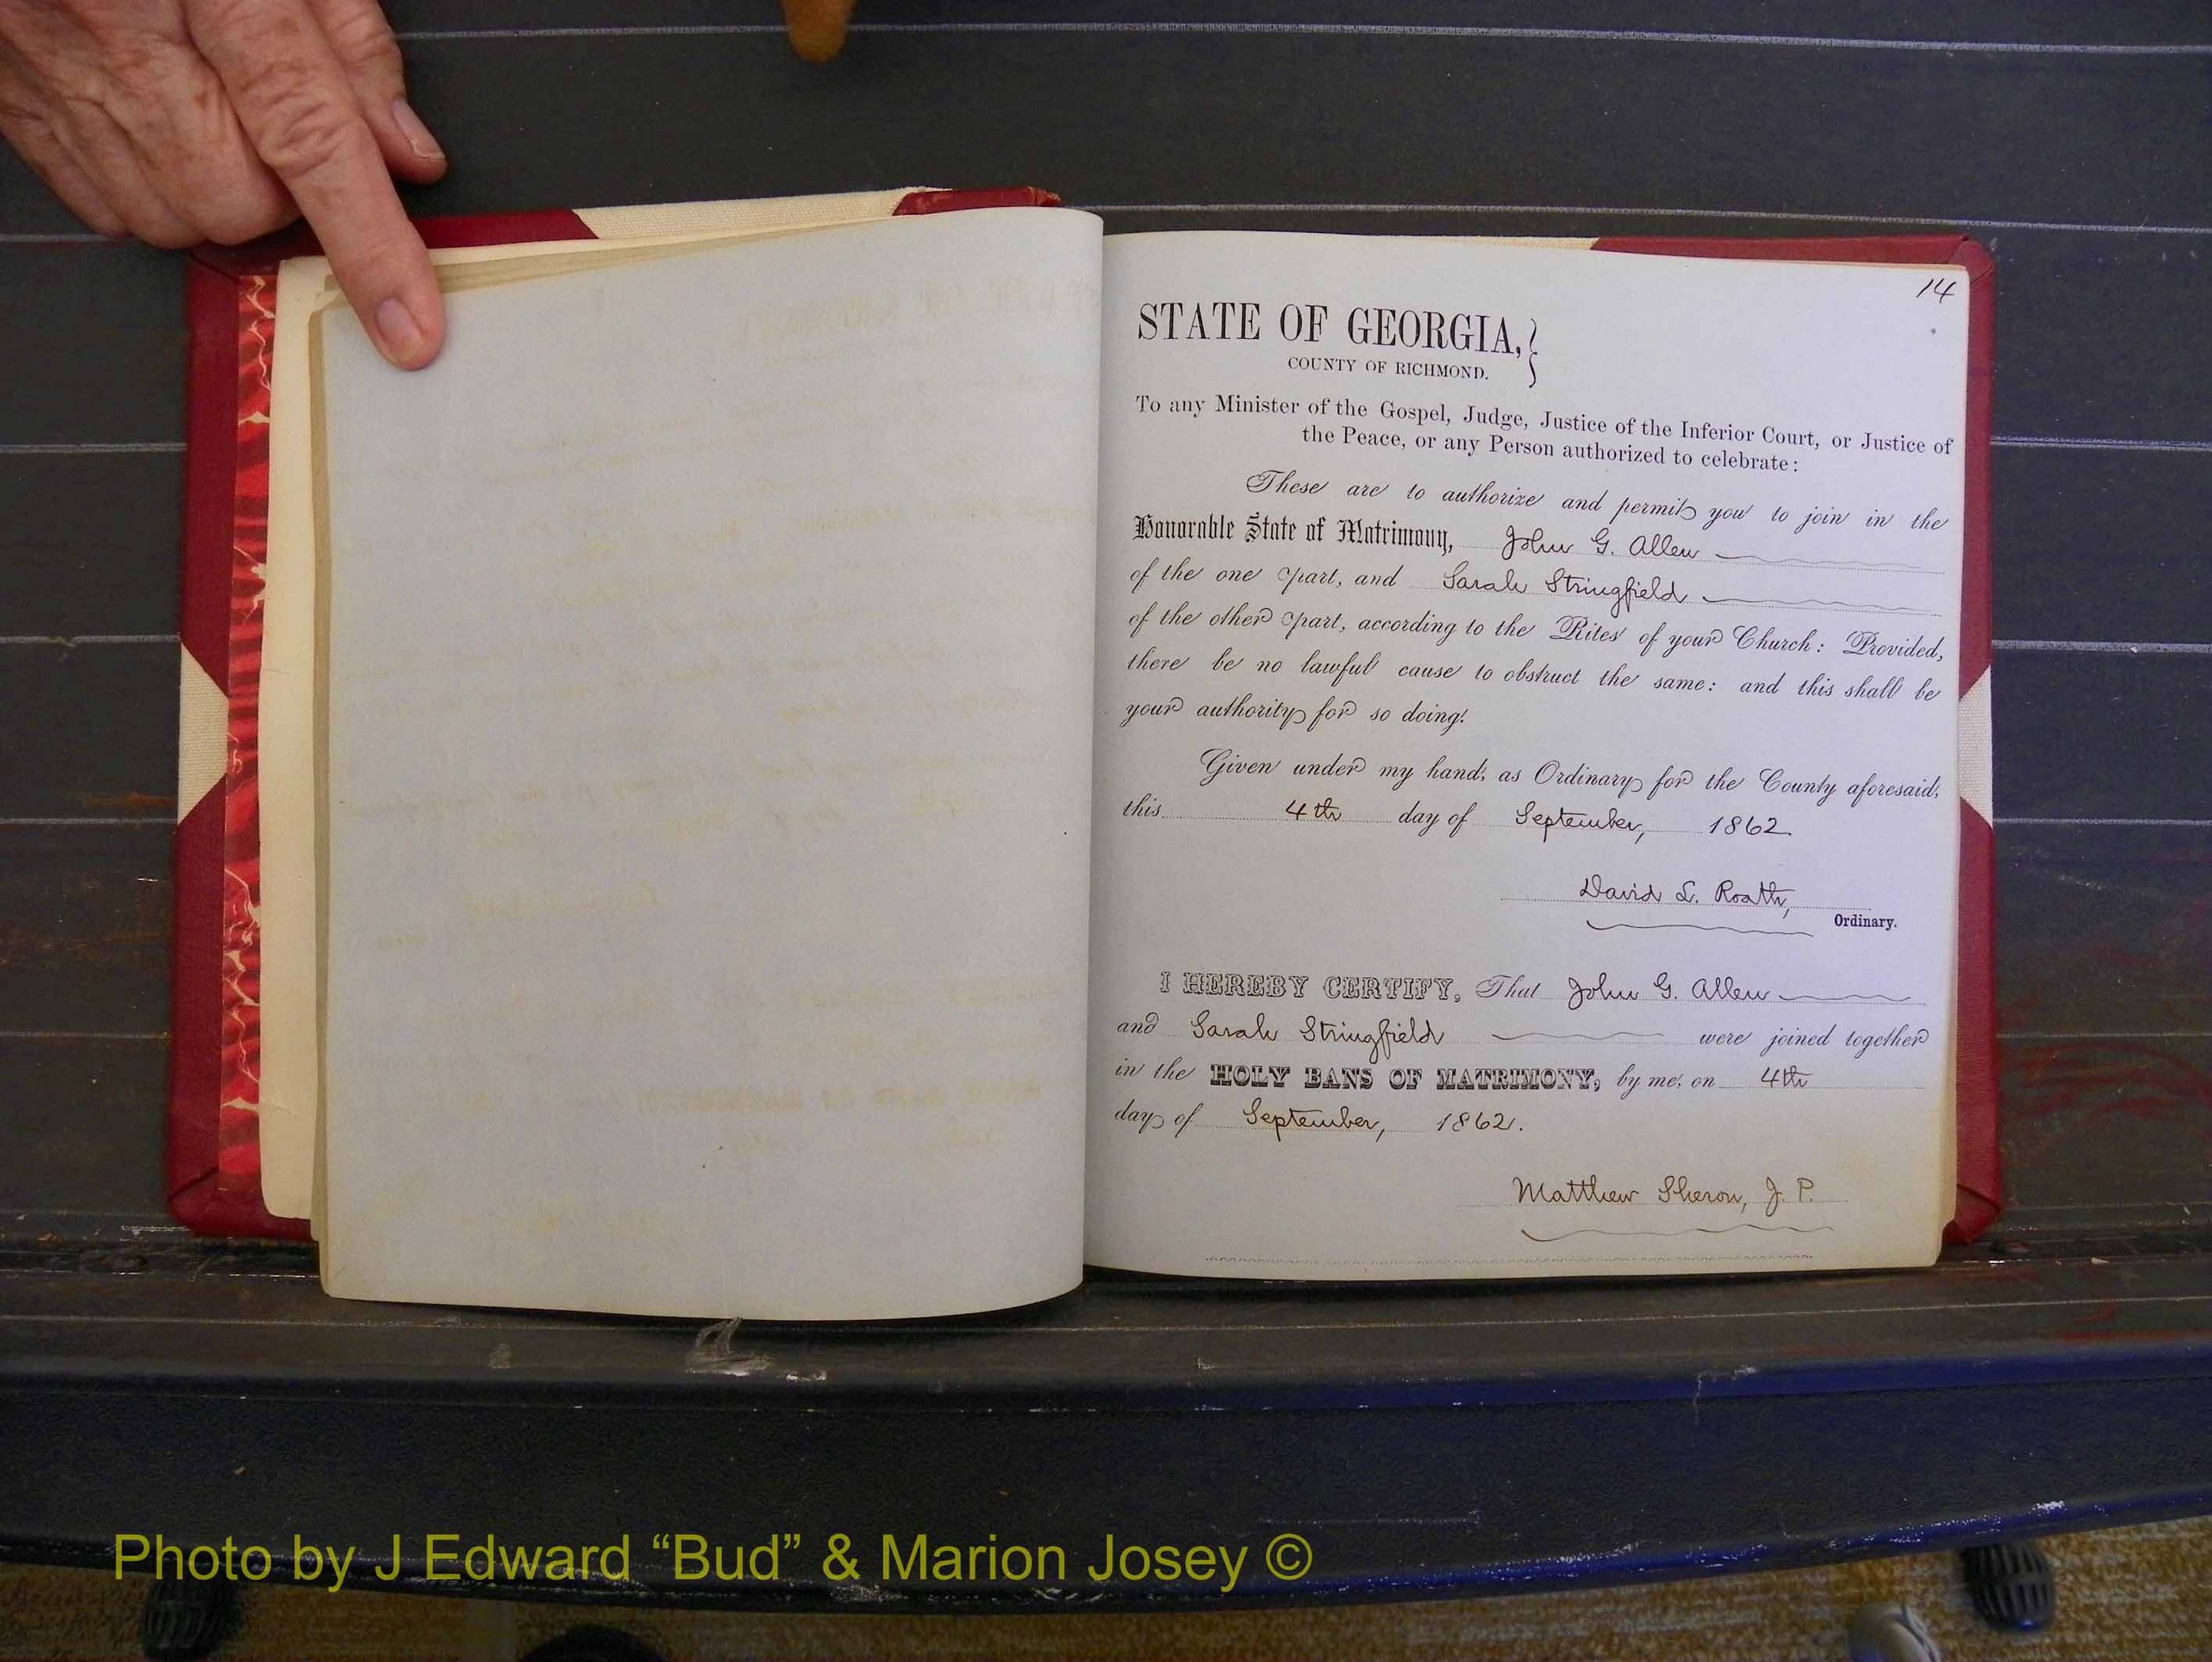 14
STATE OF GEORGIA,}
COUNTY OF RICHMOND.
To any Minister of the Gospel, Judge, Justice of the Inferior Court, or Justice of
the Peace, or any Person authorized to celebrate:
These are to authorize and permit you to join in the
Honorable State of Matrimony, John G. Allen
of the one part, and Sarah Stringfield
of the other part, according to the Rites of your Church: Provided,
there be no lawful cause to obstruct the same: and this shall be
your authority for so doing.
Given under my hand, as Ordinary for the County aforesaid,
this 4th day of September, 1862
David L. Roath,
Ordinary.
I HEREBY CERTIFY, That John G. Allen
and Sarah Stringfield were joined together
in the HOLY BANS OF MATRIMONY, by me, on 4th
day of September, 1862.
Matthew Sheron, J. P.
Photo by J Edward “Bud” & Marion Josey ©